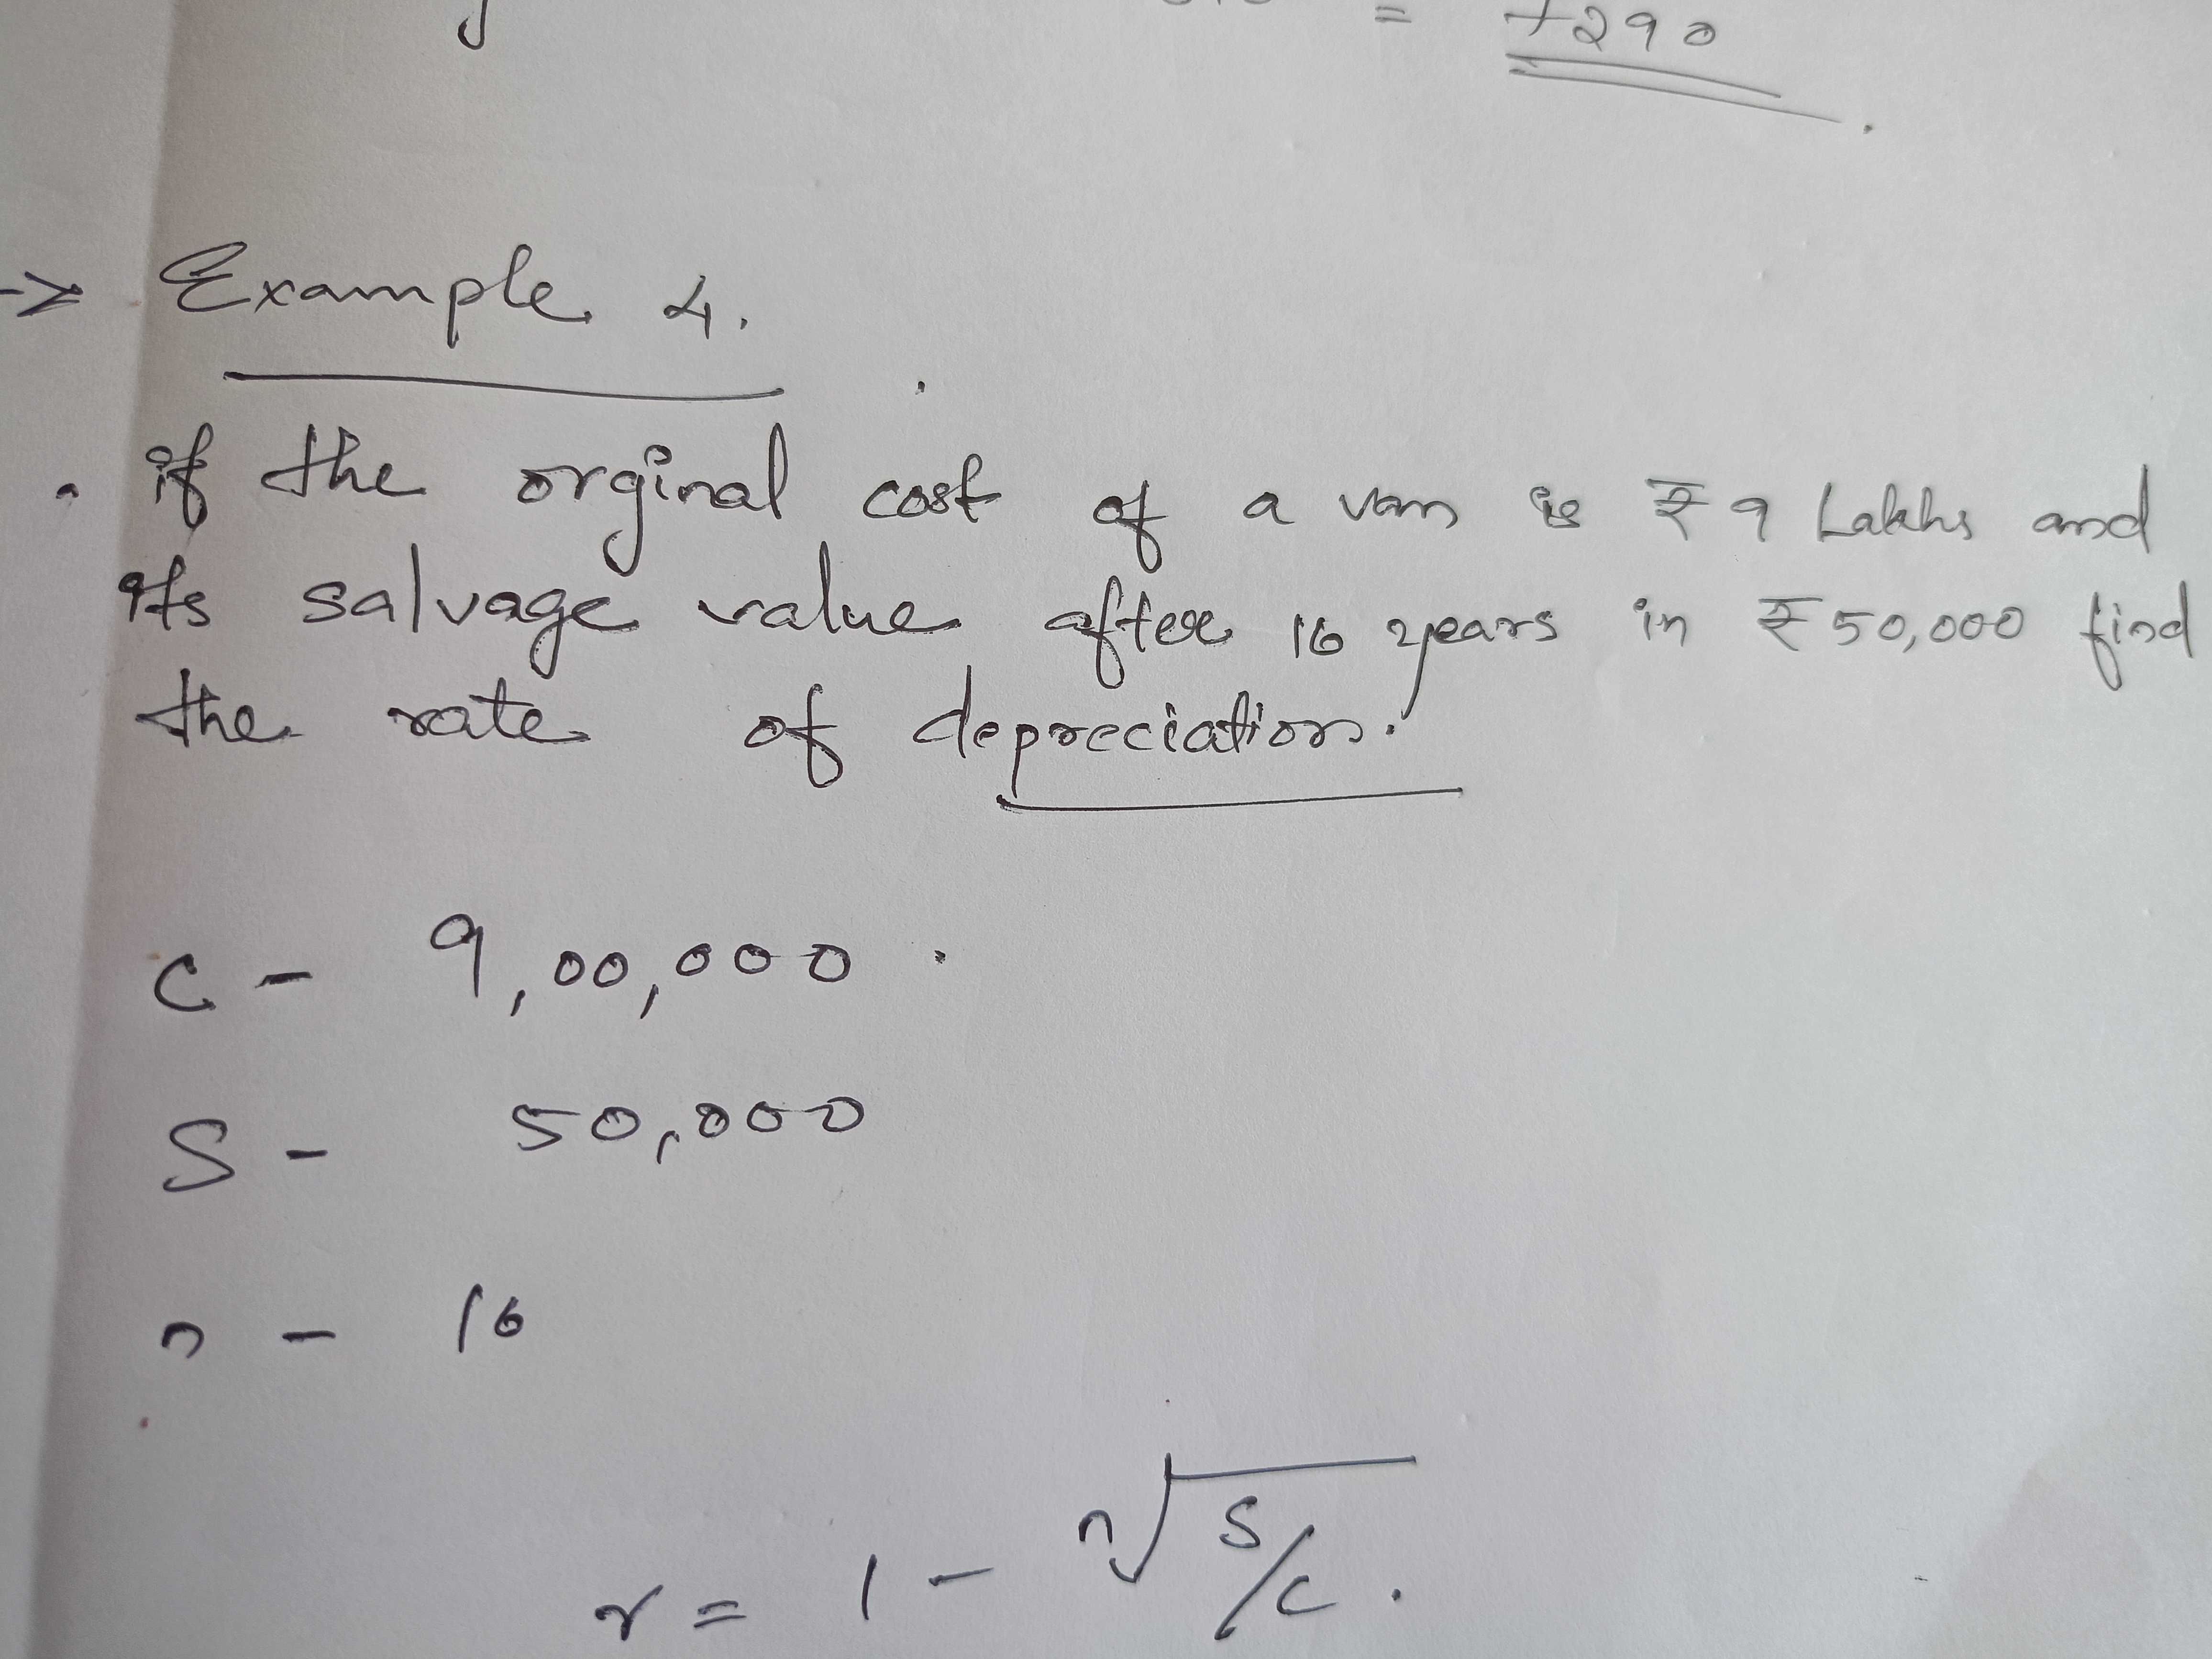 = 7290
-> Example 4.
if the orginal cost of a van is ₹9 Lakhs and
its salvage value after 16 years in ₹50,000 find
the rate of depreciation.
C - 9,00,000.
S - 50,000
n - 16
r = 1 - ⁿ√S/C.